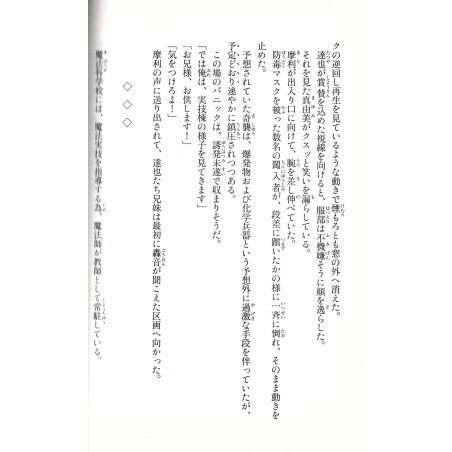 クの逆回し再生を見ているような動きで煙もろとも窓の外へ消えた。
達也が賞賛を込めた視線を向けると、服部は不機嫌そうに顔を逸らした。
それを見た真由美がクスッと笑いを漏らしている。
摩利が出入り口に向けて、腕を差し伸べていた。
防毒マスクを被った数名の闖入者が、段差に躓いたかの様に一斉に倒れ、そのまま動きを
止めた。
予想されていた奇襲は、爆発物および化学兵器という予想外に過激な手段を伴っていたが、
予定どおり速やかに鎮圧されつつある。
この場のパニックは、誘発未遂で収まりそうだ。
「では俺は、実技棟の様子を見てきます」
「お兄様、お供します!」
「気をつけろよ!」
摩利の声に送り出されて、達也たち兄妹は最初に轟音が聞こえた区画へ向かった。
◇ ◇ ◇
魔法科学校には、魔法実技を指導する為、魔法師が教師として常駐している。